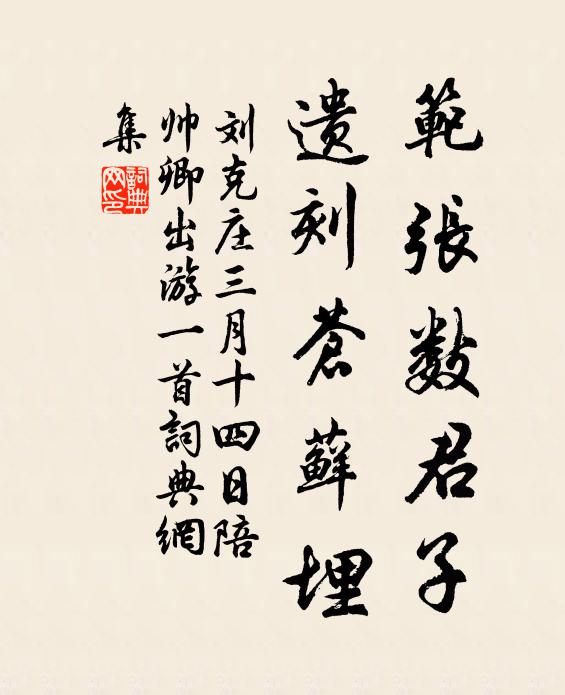 範張數君子
遺刻蒼蘚埋
刘克庄三月十四日陪
帅卿出游一首詞典網
集
詞典
网印